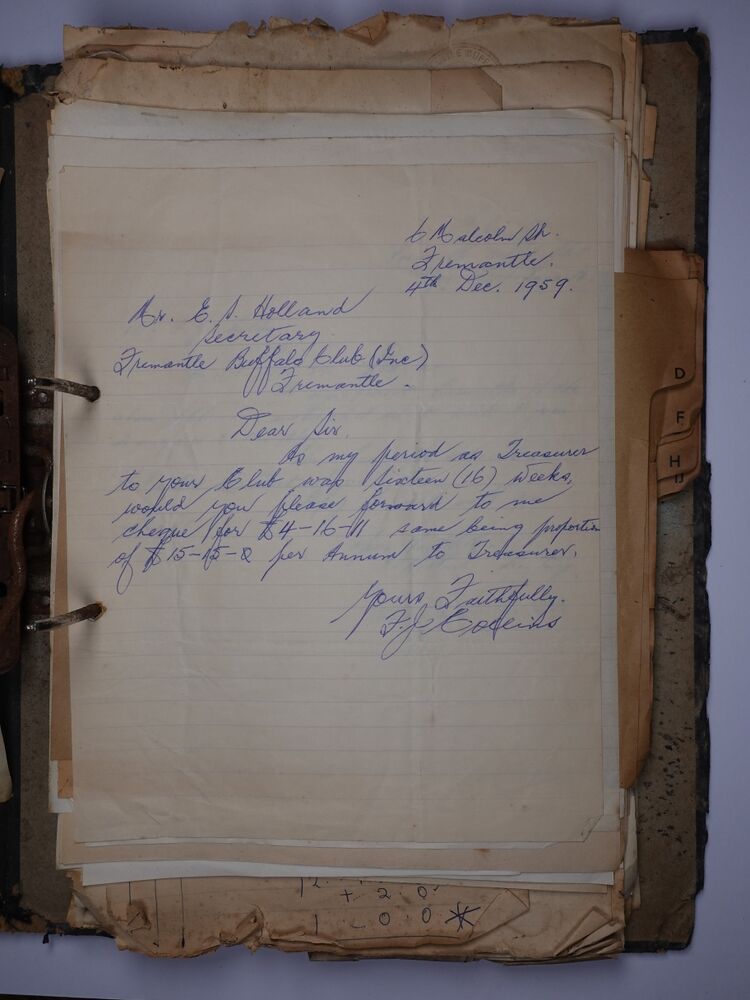 6 Malcolm St.
Fremantle.
4th Dec. 1959.
Mr. E. S. Holland
Secretary
Fremantle Buffalo Club (Inc)
Fremantle.
Dear Sir.
As my period as Treasurer
to your Club was Sixteen (16) weeks,
would you please forward to me
cheque for £4-16-11 same being proportion
of £15-15-0 per Annum to Treasurer.
Yours Faithfully.
F. J. Collins
D
F
H
+ 2 0
1 - 0 0